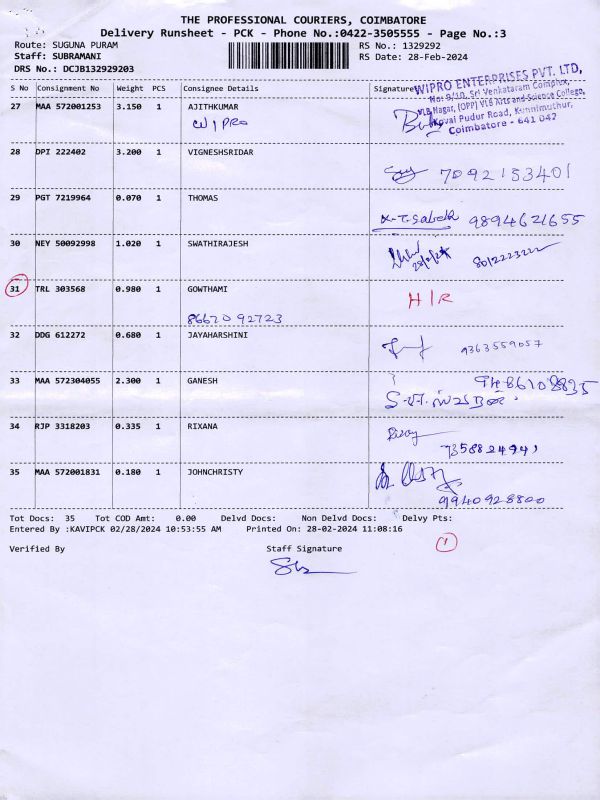 THE PROFESSIONAL COURIERS, COIMBATORE
Delivery Runsheet - PCK - Phone No.:0422-3505555 - Page No.:3
Route: SUGUNA PURAM
RS No.: 1329292
Staff: SUBRAMANI
RS Date: 28-Feb-2024
DRS No.: DCJB132929203
S No Consignment No Weight PCS Consignee Details Signature
WIPRO ENTERPRISES PVT. LTD,
No: 9/10, Sri Venkataram Complex,
VLB Nagar, (OPP) VLB Arts and Science College,
Kovai Pudur Road, Kunnimuthur,
Coimbatore - 641 042
27 MAA 572001253 3.150 1 AJITHKUMAR
WIPRO
28 DPI 222402 3.200 1 VIGNESHSRIDAR
7092153401
29 PGT 7219964 0.070 1 THOMAS
9894621655
30 NEY 50092998 1.020 1 SWATHIRAJESH
31 TRL 303568 0.980 1 GOWTHAMI
H/R
8667092723
32 DDG 612272 0.680 1 JAYAHARSHINI
9363559057
33 MAA 572304055 2.300 1 GANESH
34 RJP 3318203 0.335 1 RIXANA
35 MAA 572001831 0.180 1 JOHNCHRISTY
9940928800
Tot Docs: 35 Tot COD Amt: 0.00 Delvd Docs: Non Delvd Docs: Delvy Pts:
Entered By :KAVIPCK 02/28/2024 10:53:55 AM Printed On: 28-02-2024 11:08:16
1
Verified By Staff Signature